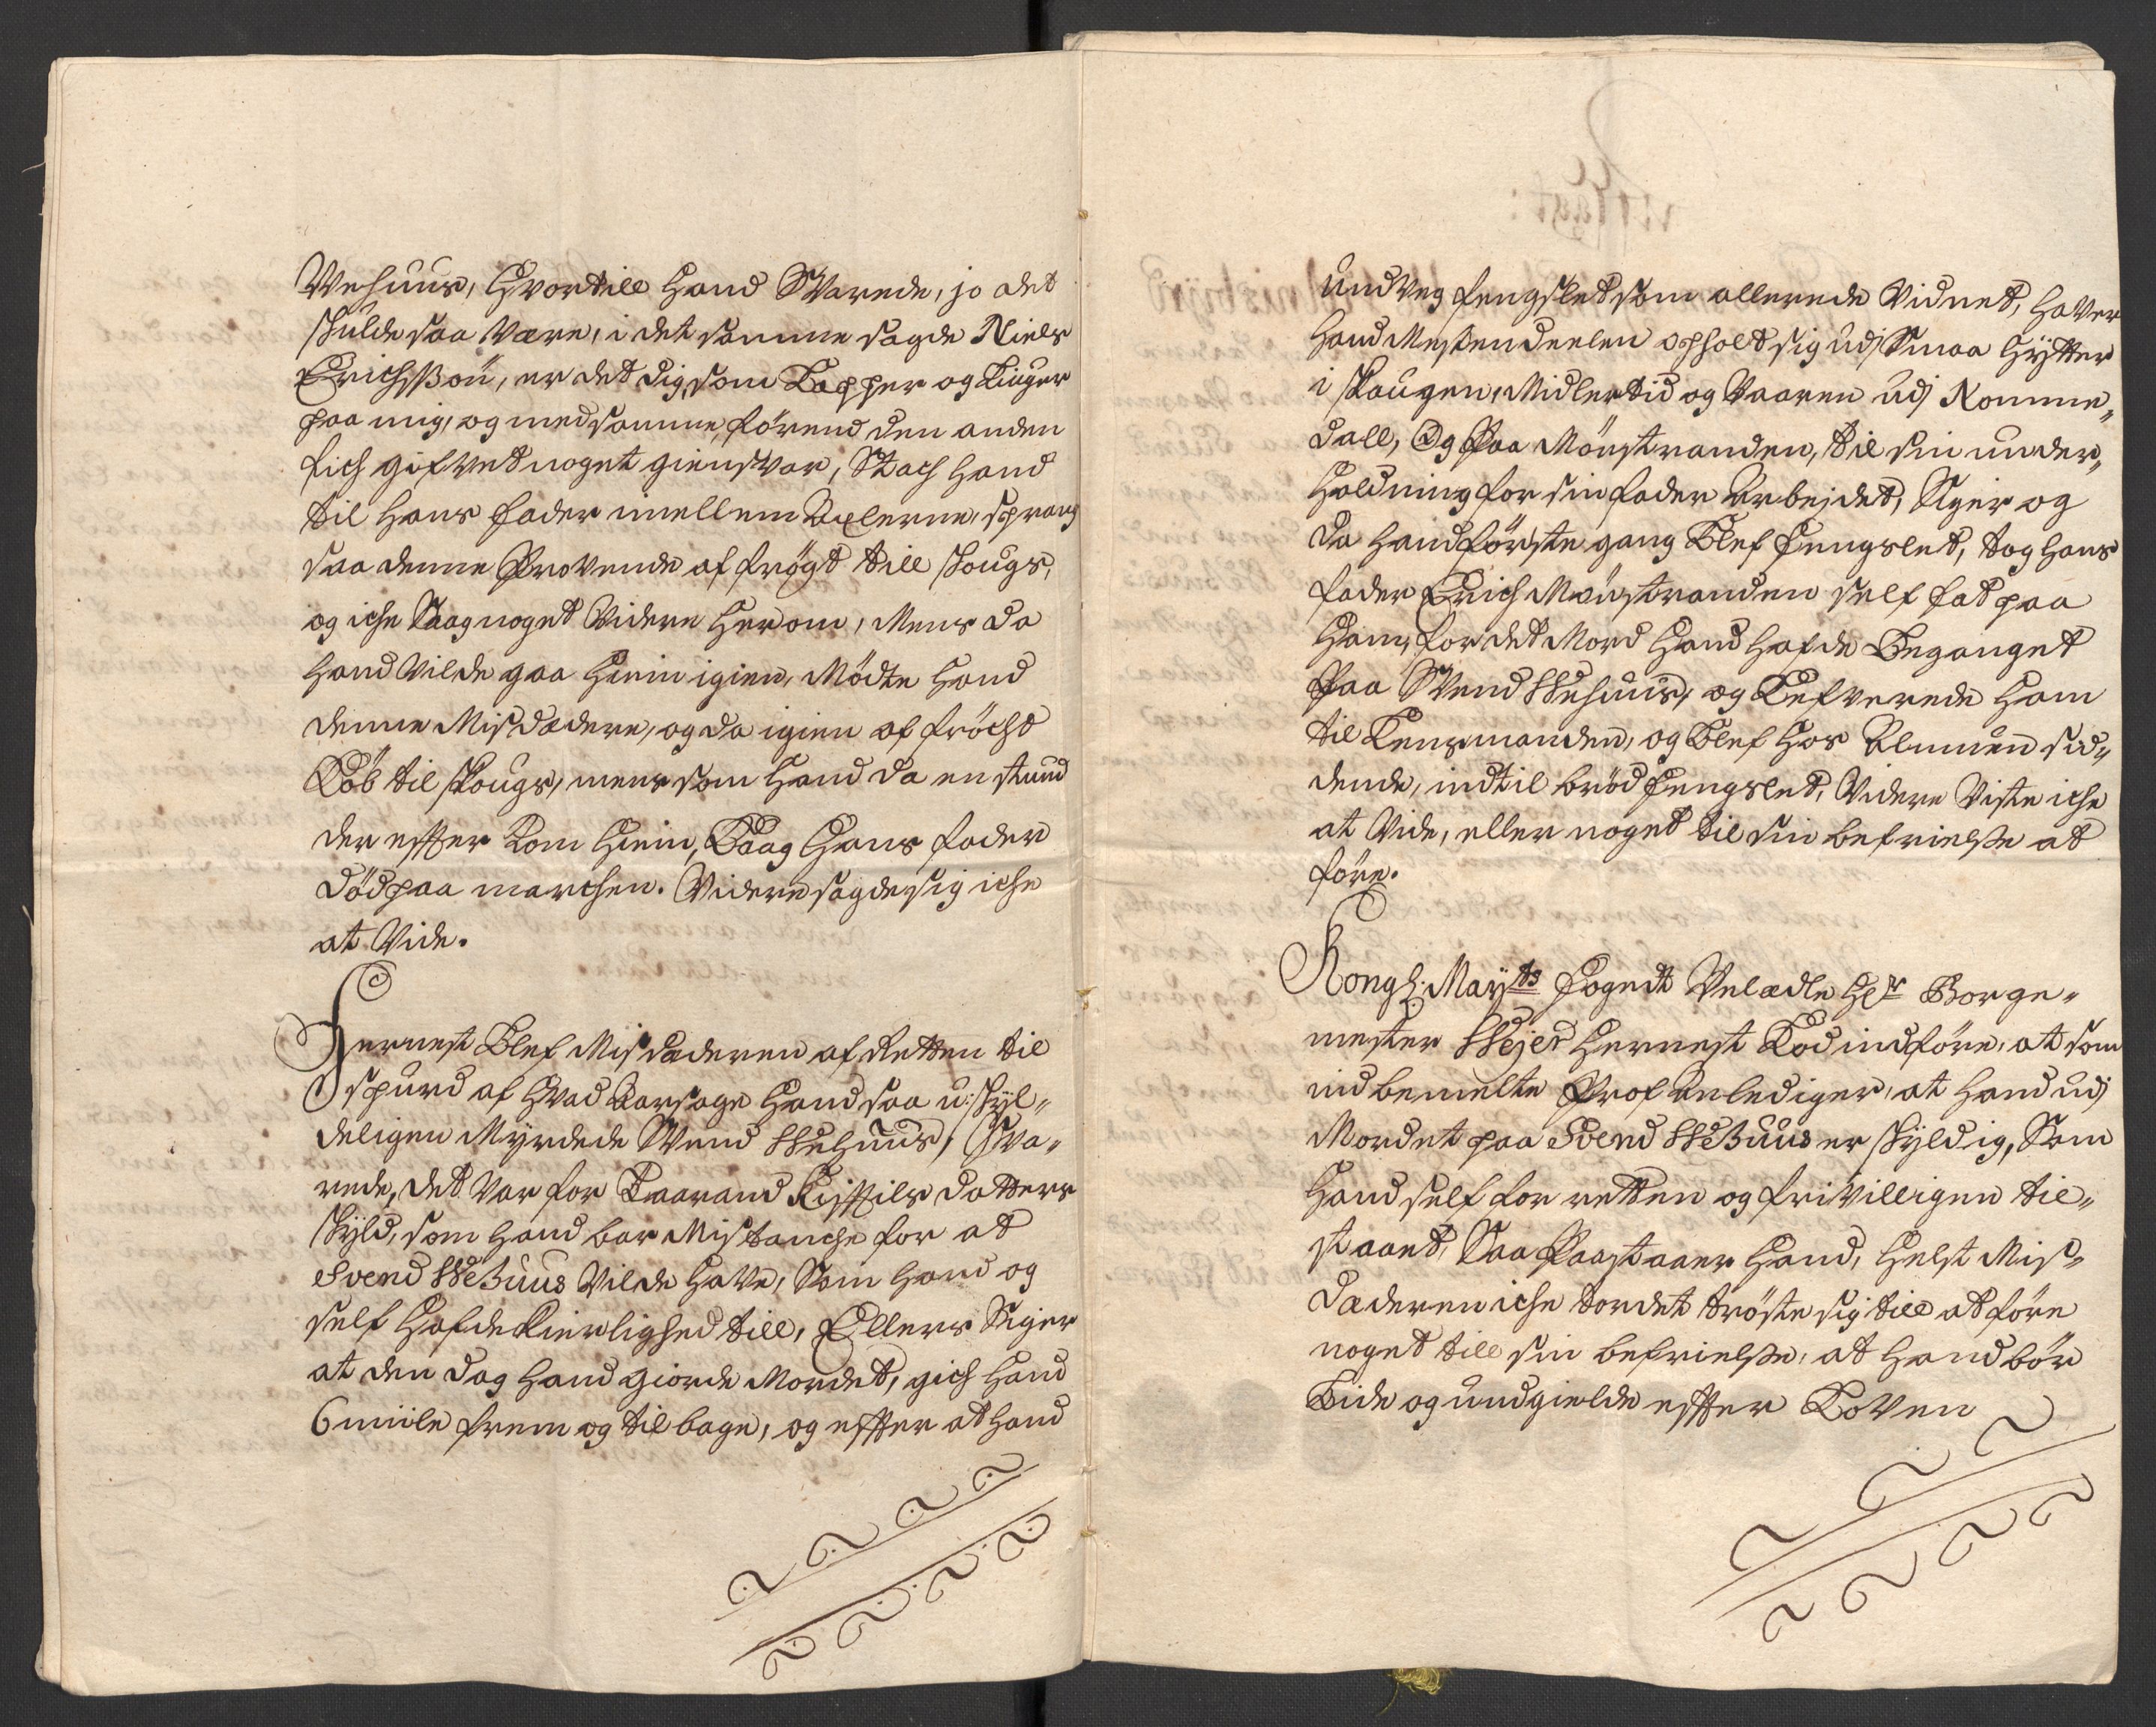 Wehuus, Hvortill Hand Svarede, jo det
skulde saa være, i det samme sagde Niels
Erichssøn, er det dig, som Lapper og Liuger
paa mig, og med samme, förend den anden
fich gifvet noget giensvar, Stach hand
til hans fader imellem Axlerne, sprang
saa denne Provende af frögt till skougs,
og iche Saag noget Videre Herom, Mens da
hand Vilde gaa Hiem igien, Mödte hand
denne Misdædere, og da igien af fröcht
Löb til skougs, mens som Hand da en stund
der effter kom hiem, Laag Hans fader
död paa marchen. Videre sagde sig iche
at Vide.
Hernest Blef Misdæderen af Retten til
spurd af Hvad Aarsage Hand saa u: skyl-
deligen Myrdede Svend Wehuus, Sva-
rede, det var for Baarand Kistils datters
skyld, som hand bar Mistanche for at
Svend Wehuus Vilde Have, Som hand og
self Hafde Kierlighed till, Ellers Siger
at den dag hand giorde Mordet, gich hand
6 miile frem og tilbage, og effter at hand
undveg fengslet som allerede Vidnet, haver
hand Mestendeelen opholt sig udj Smaa Hytter
i skougen, Midlertid og Vaaren udj Nomme-
dall, Og Paa Mönstranden, til sin under-
Holdning for sin fader Arbejdet, Siger og
da hand förste gang Blef fengslet, tog hans
fader Erich Mönstranden self fat paa
Ham, for det Mord Hand Hafde Beganget
Paa Svend Wehuus, og Lefverede Ham
til Lensmanden, og Blef hos Almuen sid-
dende, indtil bröd fengslet, Videre Viste iche
at Vide, eller noget til sin befrielsse at
före.
Kongl: Mayts Fogedt Velædle Hr Borge-
mester Wejer Hernest Lod indföre, at som
indbemelte Prof Anlediger, at hand udj
Mordet paa Svend Wehuus er skyldig, Som
Hand self for retten og frivilligen til-
staaed, Saa Paastaaer Hand, Helst Mis-
dæderen iche tordet tröste sig till at före
noget till sin befrielsse, at hand bör
Lide og undgielde effter Loven